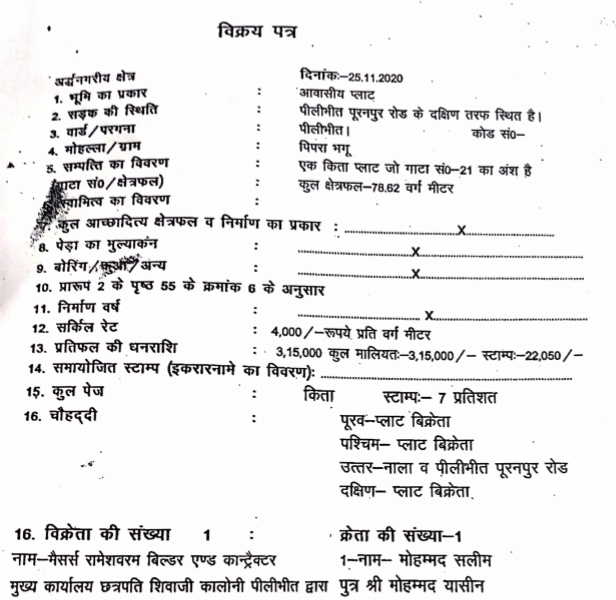 विक्रय पत्र
अर्द्धनगरीय क्षेत्र दिनांकः-25.11.2020
1. भूमि का प्रकार : आवासीय प्लाट
2. सड़क की स्थिति : पीलीभीत पूरनपुर रोड के दक्षिण तरफ स्थित है।
3. वार्ड/परगना : पीलीभीत। कोड सं0-
4. मोहल्ला/ग्राम : पिपरा भगू
5. सम्पत्ति का विवरण : एक किता प्लाट जो गाटा सं0-21 का अंश है
(गाटा सं0/क्षेत्रफल) : कुल क्षेत्रफल-78.62 वर्ग मीटर
स्वामित्व का विवरण :
कुल आच्छादित्य क्षेत्रफल व निर्माण का प्रकार : ....................x....................
8. पेड़ा का मुल्याकंन : ....................x....................
9. बोरिंग/कुआँ/अन्य : ....................x....................
10. प्रारूप 2 के पृष्ठ 55 के क्रमांक 6 के अनुसार
11. निर्माण वर्ष ....................x....................
12. सर्किल रेट : 4,000/-रूपये प्रति वर्ग मीटर
13. प्रतिफल की धनराशि : 3,15,000 कुल मालियतः-3,15,000/- स्टाम्पः-22,050/-
14. समायोजित स्टाम्प (इकरारनामे का विवरण): ........................................
15. कुल पेज : किता स्टाम्पः- 7 प्रतिशत
16. चौहद्दी : पूरव-प्लाट बिक्रेता
पश्चिम- प्लाट बिक्रेता
उत्तर-नाला व पीलीभीत पूरनपुर रोड
दक्षिण- प्लाट बिक्रेता
16. विक्रेता की संख्या 1 : क्रेता की संख्या-1
नाम-मैसर्स रामेशवरम बिल्डर एण्ड कान्ट्रैक्टर 1-नाम- मोहम्मद सलीम
मुख्य कार्यालय छत्रपति शिवाजी कालोनी पीलीभीत द्वारा पुत्र श्री मोहम्मद यासीन